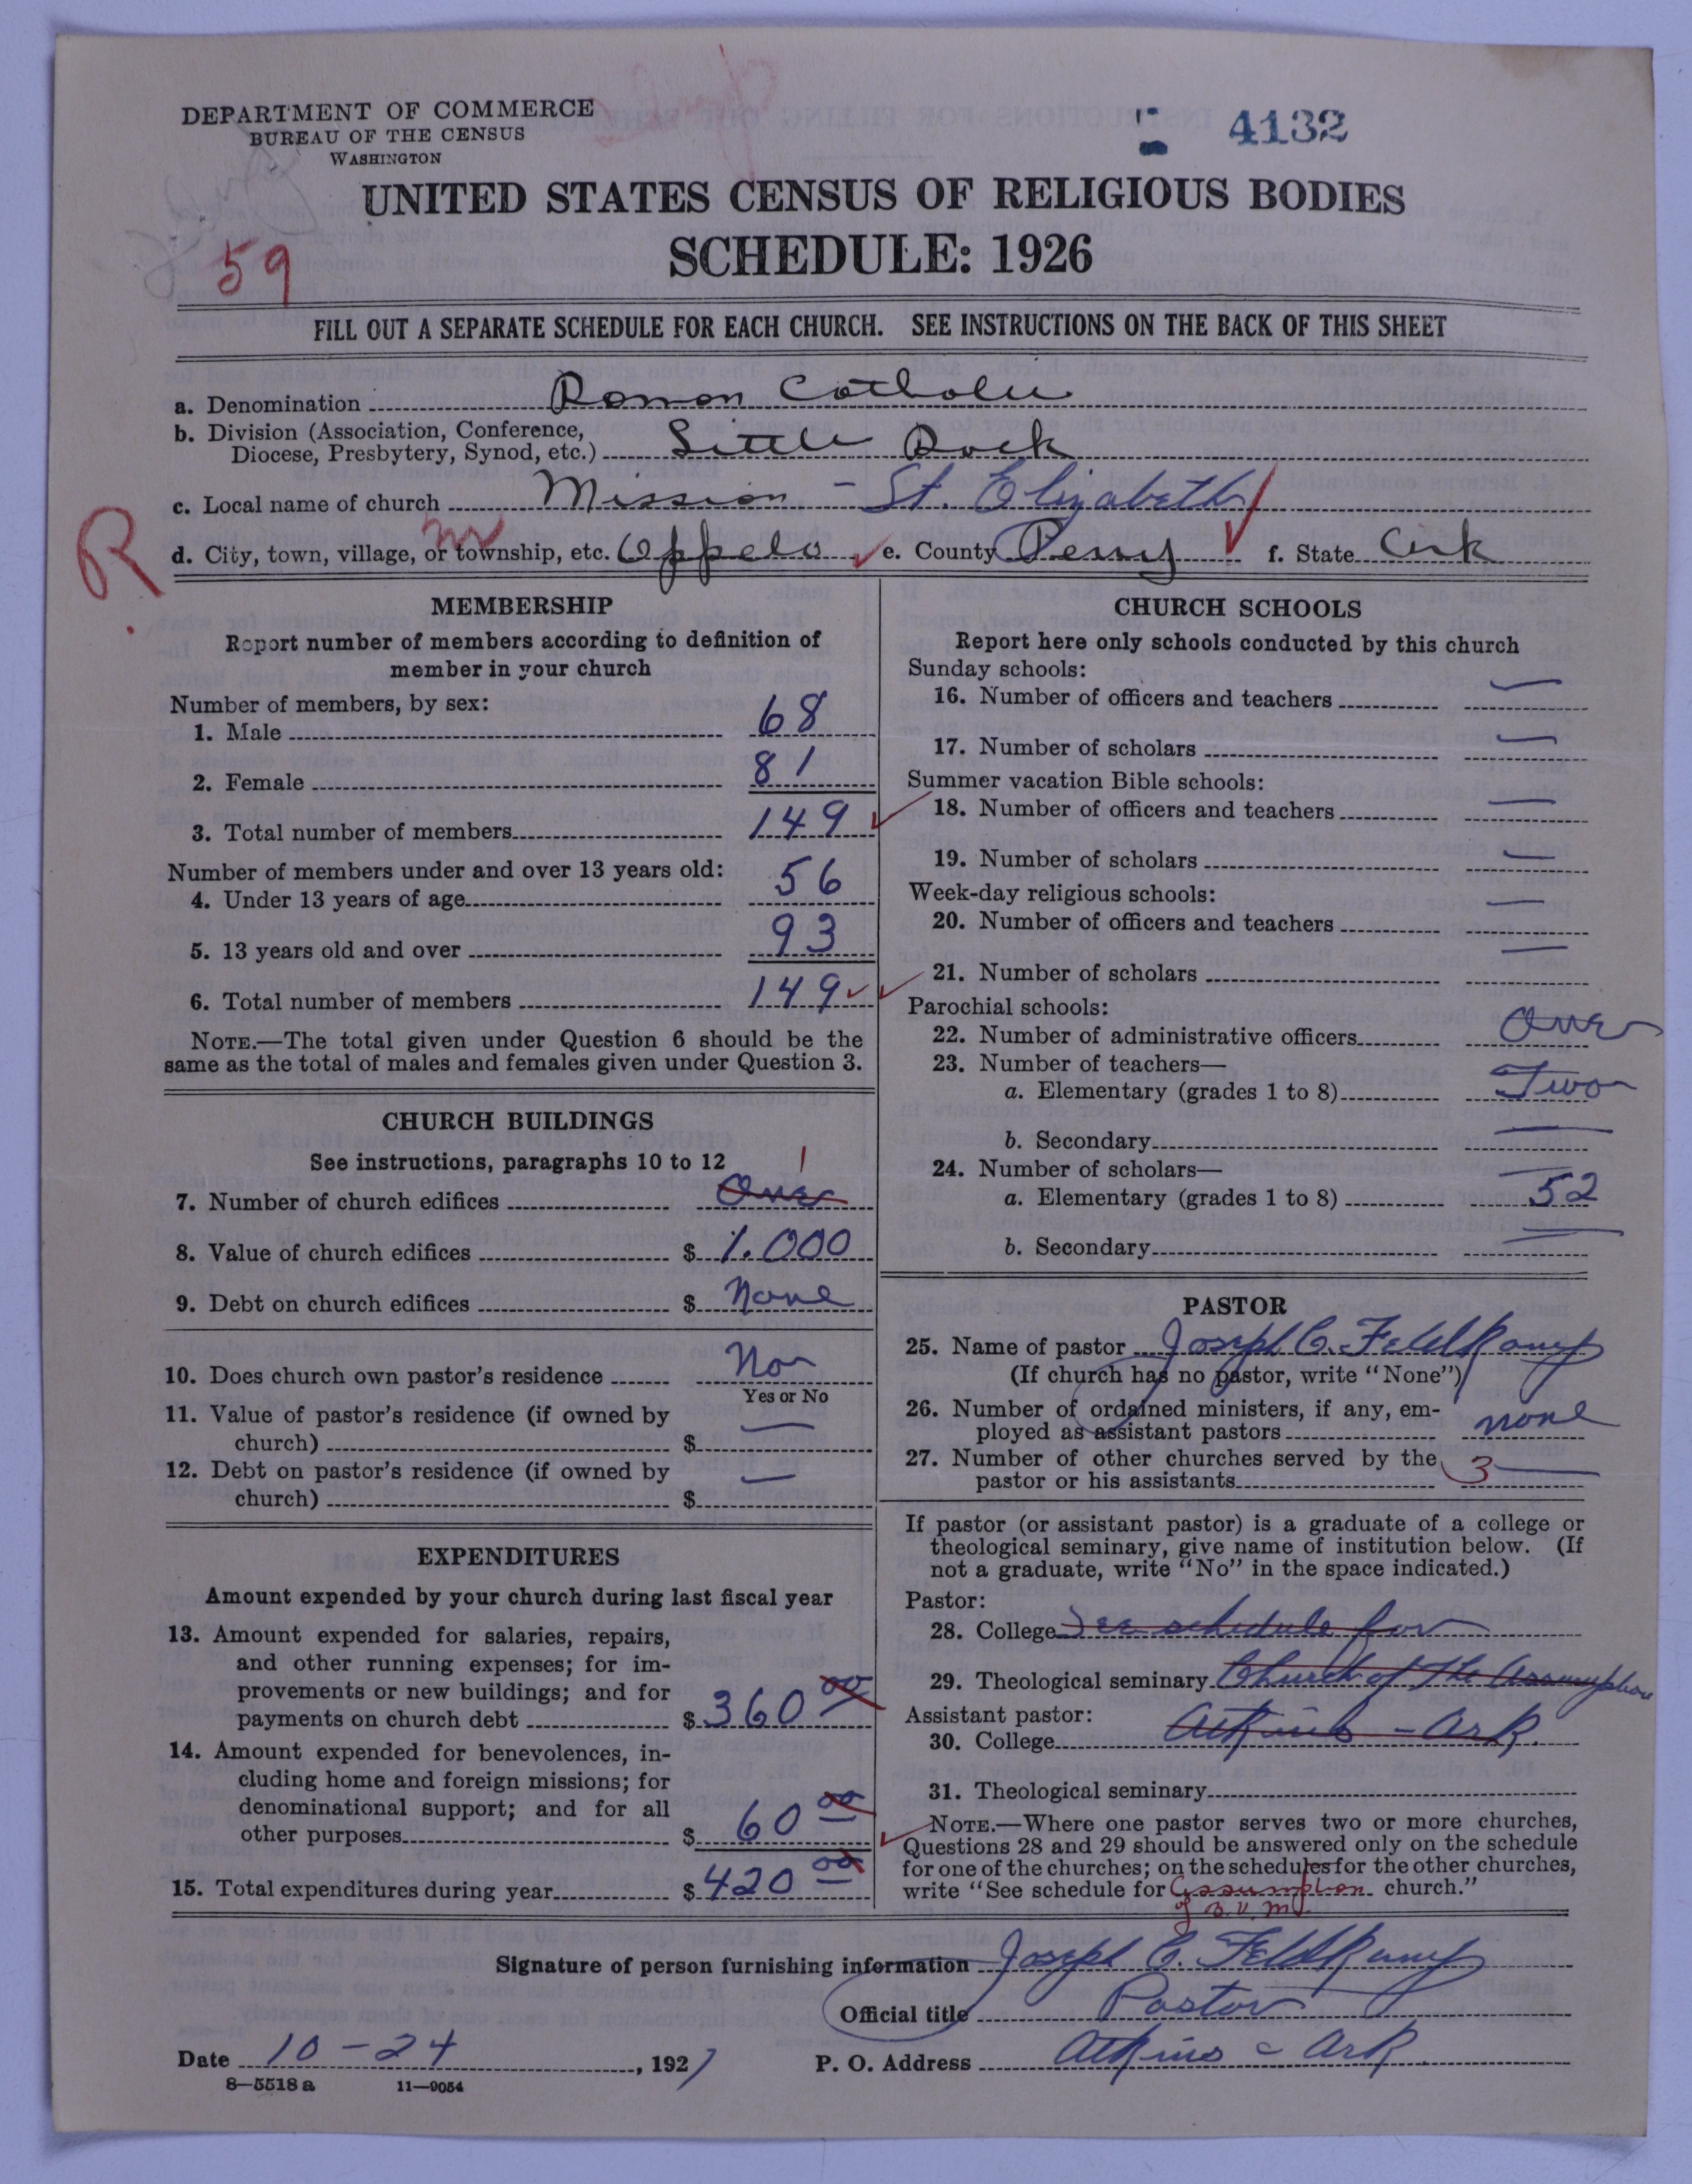 DEPARTMENT OF COMMERCE
BUREAU OF THE CENSUS
WASHINGTON
4132
UNITED STATES CENSUS OF RELIGIOUS BODIES
SCHEDULE: 1926
59
FILL OUT A SEPARATE SCHEDULE FOR EACH CHURCH. SEE INSTRUCTIONS ON THE BACK OF THIS SHEET
a. Denomination Roman Catholic
b. Division (Association, Conference,
Diocese, Presbytery, Synod, etc.) Little Rock
c. Local name of church Mission - St. Elizabeth
R
d. City, town, village, or township, etc. Oppelo e. County Perry f. State Ark
MEMBERSHIP
Report number of members according to definition of
member in your church
Number of members, by sex:
1. Male 68
2. Female 81
3. Total number of members 149
Number of members under and over 13 years old:
4. Under 13 years of age 56
5. 13 years old and over 93
6. Total number of members 149
NOTE.—The total given under Question 6 should be the
same as the total of males and females given under Question 3.
CHURCH BUILDINGS
See instructions, paragraphs 10 to 12
1
7. Number of church edifices One
8. Value of church edifices $ 1.000
9. Debt on church edifices $ None
10. Does church own pastor's residence No
Yes or No
11. Value of pastor's residence (if owned by
church) $ —
12. Debt on pastor's residence (if owned by
church) $ —
EXPENDITURES
Amount expended by your church during last fiscal year
13. Amount expended for salaries, repairs,
and other running expenses; for im-
provements or new buildings; and for
payments on church debt $ 360 00
14. Amount expended for benevolences, in-
cluding home and foreign missions; for
denominational support; and for all
other purposes $ 60 00
15. Total expenditures during year $ 420 00
CHURCH SCHOOLS
Report here only schools conducted by this church
Sunday schools:
16. Number of officers and teachers —
17. Number of scholars —
Summer vacation Bible schools:
18. Number of officers and teachers —
19. Number of scholars —
Week-day religious schools:
20. Number of officers and teachers —
21. Number of scholars —
Parochial schools:
22. Number of administrative officers One
23. Number of teachers—
a. Elementary (grades 1 to 8) Two
b. Secondary —
24. Number of scholars—
a. Elementary (grades 1 to 8) 52
b. Secondary —
PASTOR
25. Name of pastor Joseph C. Feldkamp
(If church has no pastor, write "None")
26. Number of ordained ministers, if any, em-
ployed as assistant pastors none
27. Number of other churches served by the
pastor or his assistants 3 —
If pastor (or assistant pastor) is a graduate of a college or
theological seminary, give name of institution below. (If
not a graduate, write "No" in the space indicated.)
Pastor:
28. College See schedule for
29. Theological seminary Church of the Assumption
Assistant pastor:
30. College Atkins - Ark.
31. Theological seminary
NOTE.—Where one pastor serves two or more churches,
Questions 28 and 29 should be answered only on the schedule
for one of the churches; on the schedules for the other churches,
write "See schedule for Assumption church."
of B.V.M.
Signature of person furnishing information Joseph C. Feldkamp
Official title Pastor
Date 10-24, 1927 P. O. Address Atkins - Ark
8—5518 a 11—9054